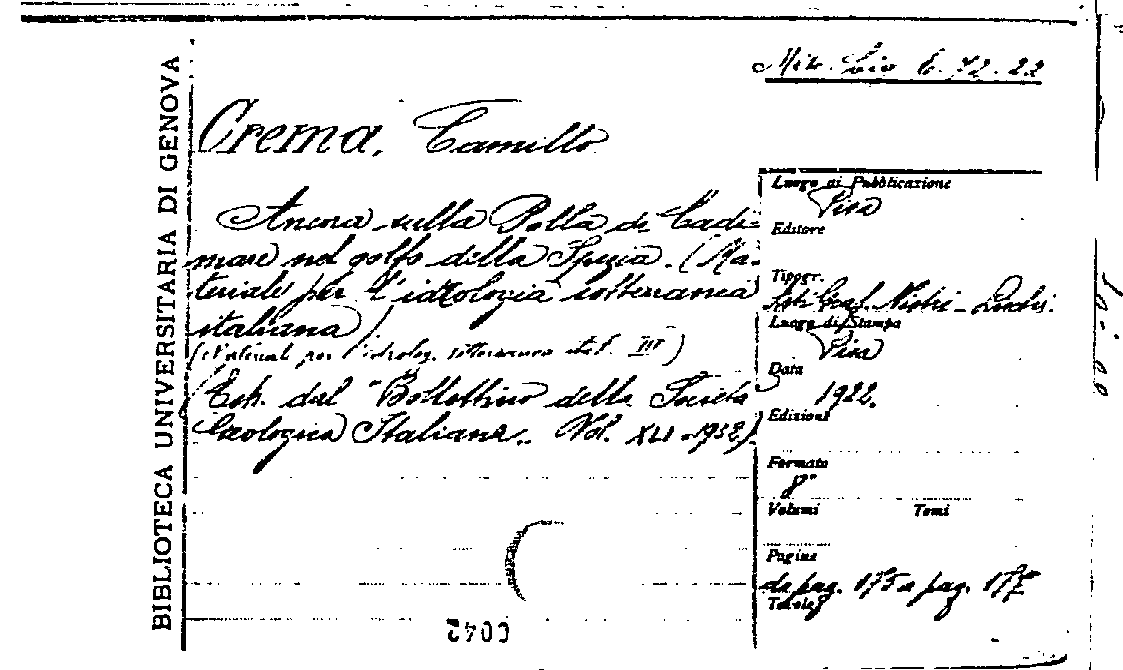 BIBLIOTECA UNIVERSITARIA DI GENOVA
Crema, Camillo
Ancora sulla Polla di Cadi=
mare nel golfo della Spezia. (Ma=
teriale per l'idrologia sotterranea
italiana)
(Material. per l'idrolog. sotterranea ital. III)
(Estr. dal "Bollettino della Società
Geologica Italiana. Vol. XLI - 1922).
Luogo di Pubblicazione
Pisa
Editore
Tipogr.
Luogo di Stampa
Pisa
Data
1922.
Edizione
Formato
8°
Volumi Tomi
Pagine
da pag. 175 a pag. 177
Tavole
0042